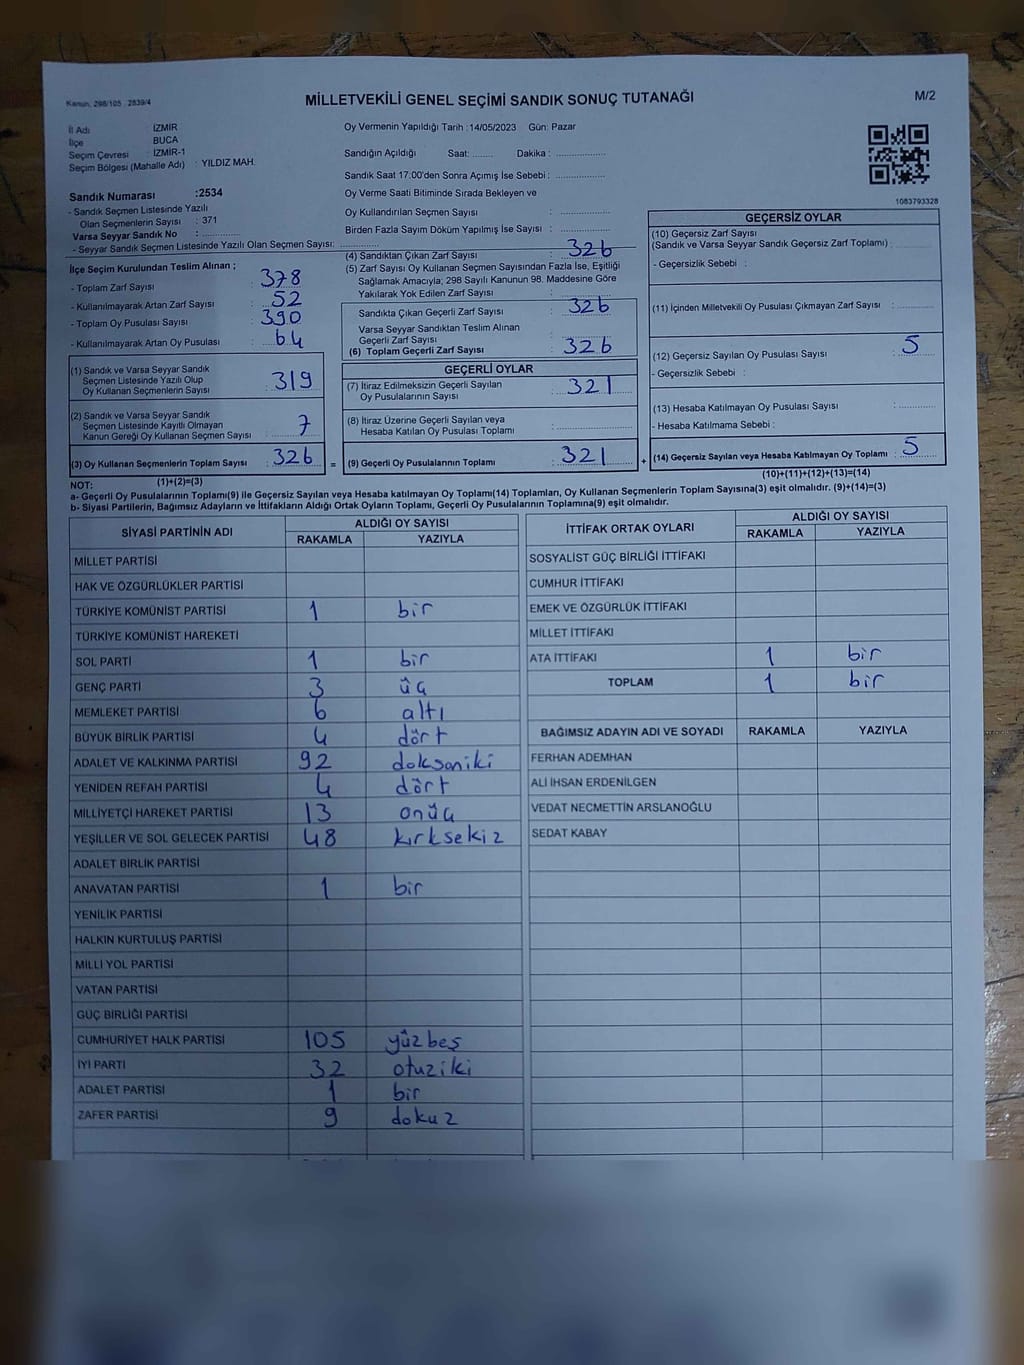 Kanun, 298/105 , 2839/4
MİLLETVEKİLİ GENEL SEÇİMİ SANDIK SONUÇ TUTANAĞI
M/2
İl Adı İZMİR
İlçe BUCA
Seçim Çevresi : İZMİR-1
Seçim Bölgesi (Mahalle Adı) : YILDIZ MAH.
Sandık Numarası :2534
- Sandık Seçmen Listesinde Yazılı
Olan Seçmenlerin Sayısı : 371
Varsa Seyyar Sandık No : ............
- Seyyar Sandık Seçmen Listesinde Yazılı Olan Seçmen Sayısı: ............
Oy Vermenin Yapıldığı Tarih :14/05/2023 Gün: Pazar
Sandığın Açıldığı Saat: ....... Dakika : ................
Sandık Saat 17:00'den Sonra Açımış İse Sebebi : ................
Oy Verme Saati Bitiminde Sırada Bekleyen ve
Oy Kullandırılan Seçmen Sayısı : ................
Birden Fazla Sayım Döküm Yapılmış İse Sayısı : ................
1083793328
İlçe Seçim Kurulundan Teslim Alınan ;
- Toplam Zarf Sayısı : 378
- Kullanılmayarak Artan Zarf Sayısı : 52
- Toplam Oy Pusulası Sayısı : 390
- Kullanılmayarak Artan Oy Pusulası : 64
(1) Sandık ve Varsa Seyyar Sandık
Seçmen Listesinde Yazılı Olup
Oy Kullanan Seçmenlerin Sayısı : 319
(2) Sandık ve Varsa Seyyar Sandık
Seçmen Listesinde Kayıtlı Olmayan
Kanun Gereği Oy Kullanan Seçmen Sayısı : 7
(3) Oy Kullanan Seçmenlerin Toplam Sayısı : 326
(1)+(2)=(3)
(4) Sandıktan Çıkan Zarf Sayısı : 326
(5) Zarf Sayısı Oy Kullanan Seçmen Sayısından Fazla İse, Eşitliği
Sağlamak Amacıyla; 298 Sayılı Kanunun 98. Maddesine Göre
Yakılarak Yok Edilen Zarf Sayısı :
Sandıkta Çıkan Geçerli Zarf Sayısı : 326
Varsa Seyyar Sandıktan Teslim Alınan
Geçerli Zarf Sayısı :
(6) Toplam Geçerli Zarf Sayısı : 326
GEÇERLİ OYLAR
(7) İtiraz Edilmeksizin Geçerli Sayılan
Oy Pusulalarının Sayısı : 321
(8) İtiraz Üzerine Geçerli Sayılan veya
Hesaba Katılan Oy Pusulası Toplamı :
= (9) Geçerli Oy Pusulalarının Toplamı : 321
GEÇERSİZ OYLAR
(10) Geçersiz Zarf Sayısı
(Sandık ve Varsa Seyyar Sandık Geçersiz Zarf Toplamı) :
- Geçersizlik Sebebi :
(11) İçinden Milletvekili Oy Pusulası Çıkmayan Zarf Sayısı :
(12) Geçersiz Sayılan Oy Pusulası Sayısı : 5
- Geçersizlik Sebebi :
(13) Hesaba Katılmayan Oy Pusulası Sayısı :
- Hesaba Katılmama Sebebi :
+ (14) Geçersiz Sayılan veya Hesaba Katılmayan Oy Toplamı : 5
(10)+(11)+(12)+(13)=(14)
NOT:
a- Geçerli Oy Pusulalarının Toplamı(9) ile Geçersiz Sayılan veya Hesaba katılmayan Oy Toplamı(14) Toplamları, Oy Kullanan Seçmenlerin Toplam Sayısına(3) eşit olmalıdır. (9)+(14)=(3)
b- Siyasi Partilerin, Bağımsız Adayların ve İttifakların Aldığı Ortak Oyların Toplamı, Geçerli Oy Pusulalarının Toplamına(9) eşit olmalıdır.
SİYASİ PARTİNİN ADI ALDIĞI OY SAYISI
RAKAMLA YAZIYLA
MİLLET PARTİSİ
HAK VE ÖZGÜRLÜKLER PARTİSİ
TÜRKİYE KOMÜNİST PARTİSİ 1 bir
TÜRKİYE KOMÜNİST HAREKETİ
SOL PARTİ 1 bir
GENÇ PARTİ 3 üç
MEMLEKET PARTİSİ 6 altı
BÜYÜK BİRLİK PARTİSİ 4 dört
ADALET VE KALKINMA PARTİSİ 92 doksaniki
YENİDEN REFAH PARTİSİ 4 dört
MİLLİYETÇİ HAREKET PARTİSİ 13 onüç
YEŞİLLER VE SOL GELECEK PARTİSİ 48 kırksekiz
ADALET BİRLİK PARTİSİ
ANAVATAN PARTİSİ 1 bir
YENİLİK PARTİSİ
HALKIN KURTULUŞ PARTİSİ
MİLLİ YOL PARTİSİ
VATAN PARTİSİ
GÜÇ BİRLİĞİ PARTİSİ
CUMHURİYET HALK PARTİSİ 105 yüzbeş
İYİ PARTİ 32 otuziki
ADALET PARTİSİ 1 bir
ZAFER PARTİSİ 9 dokuz
İTTİFAK ORTAK OYLARI ALDIĞI OY SAYISI
RAKAMLA YAZIYLA
SOSYALİST GÜÇ BİRLİĞİ İTTİFAKI
CUMHUR İTTİFAKI
EMEK VE ÖZGÜRLÜK İTTİFAKI
MİLLET İTTİFAKI
ATA İTTİFAKI 1 bir
TOPLAM 1 bir
BAĞIMSIZ ADAYIN ADI VE SOYADI RAKAMLA YAZIYLA
FERHAN ADEMHAN
ALİ İHSAN ERDENİLGEN
VEDAT NECMETTİN ARSLANOĞLU
SEDAT KABAY